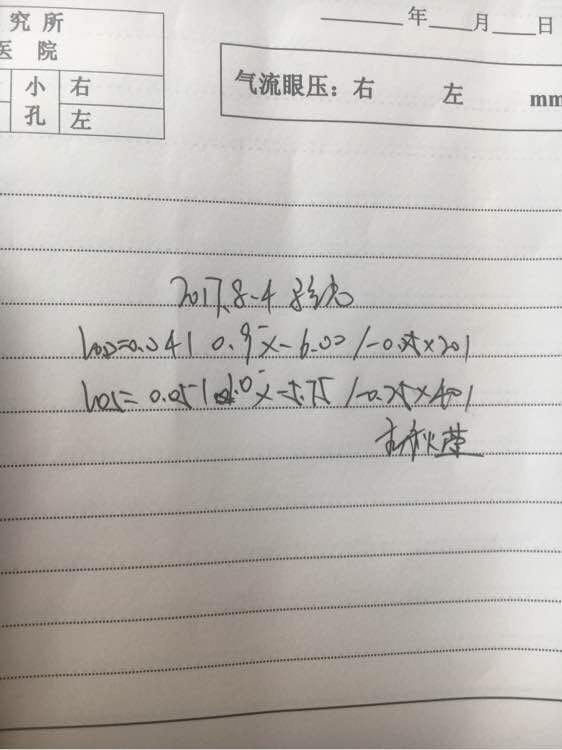 究所
医院
小孔 右
左
年 月 日
气流眼压：右 左 mm
2017.8-4
VOD=0.04| 0.9⁻x-6.00/-0.75×20|
VOS= 0.05| 1.0⁻x-5.75/-0.75×